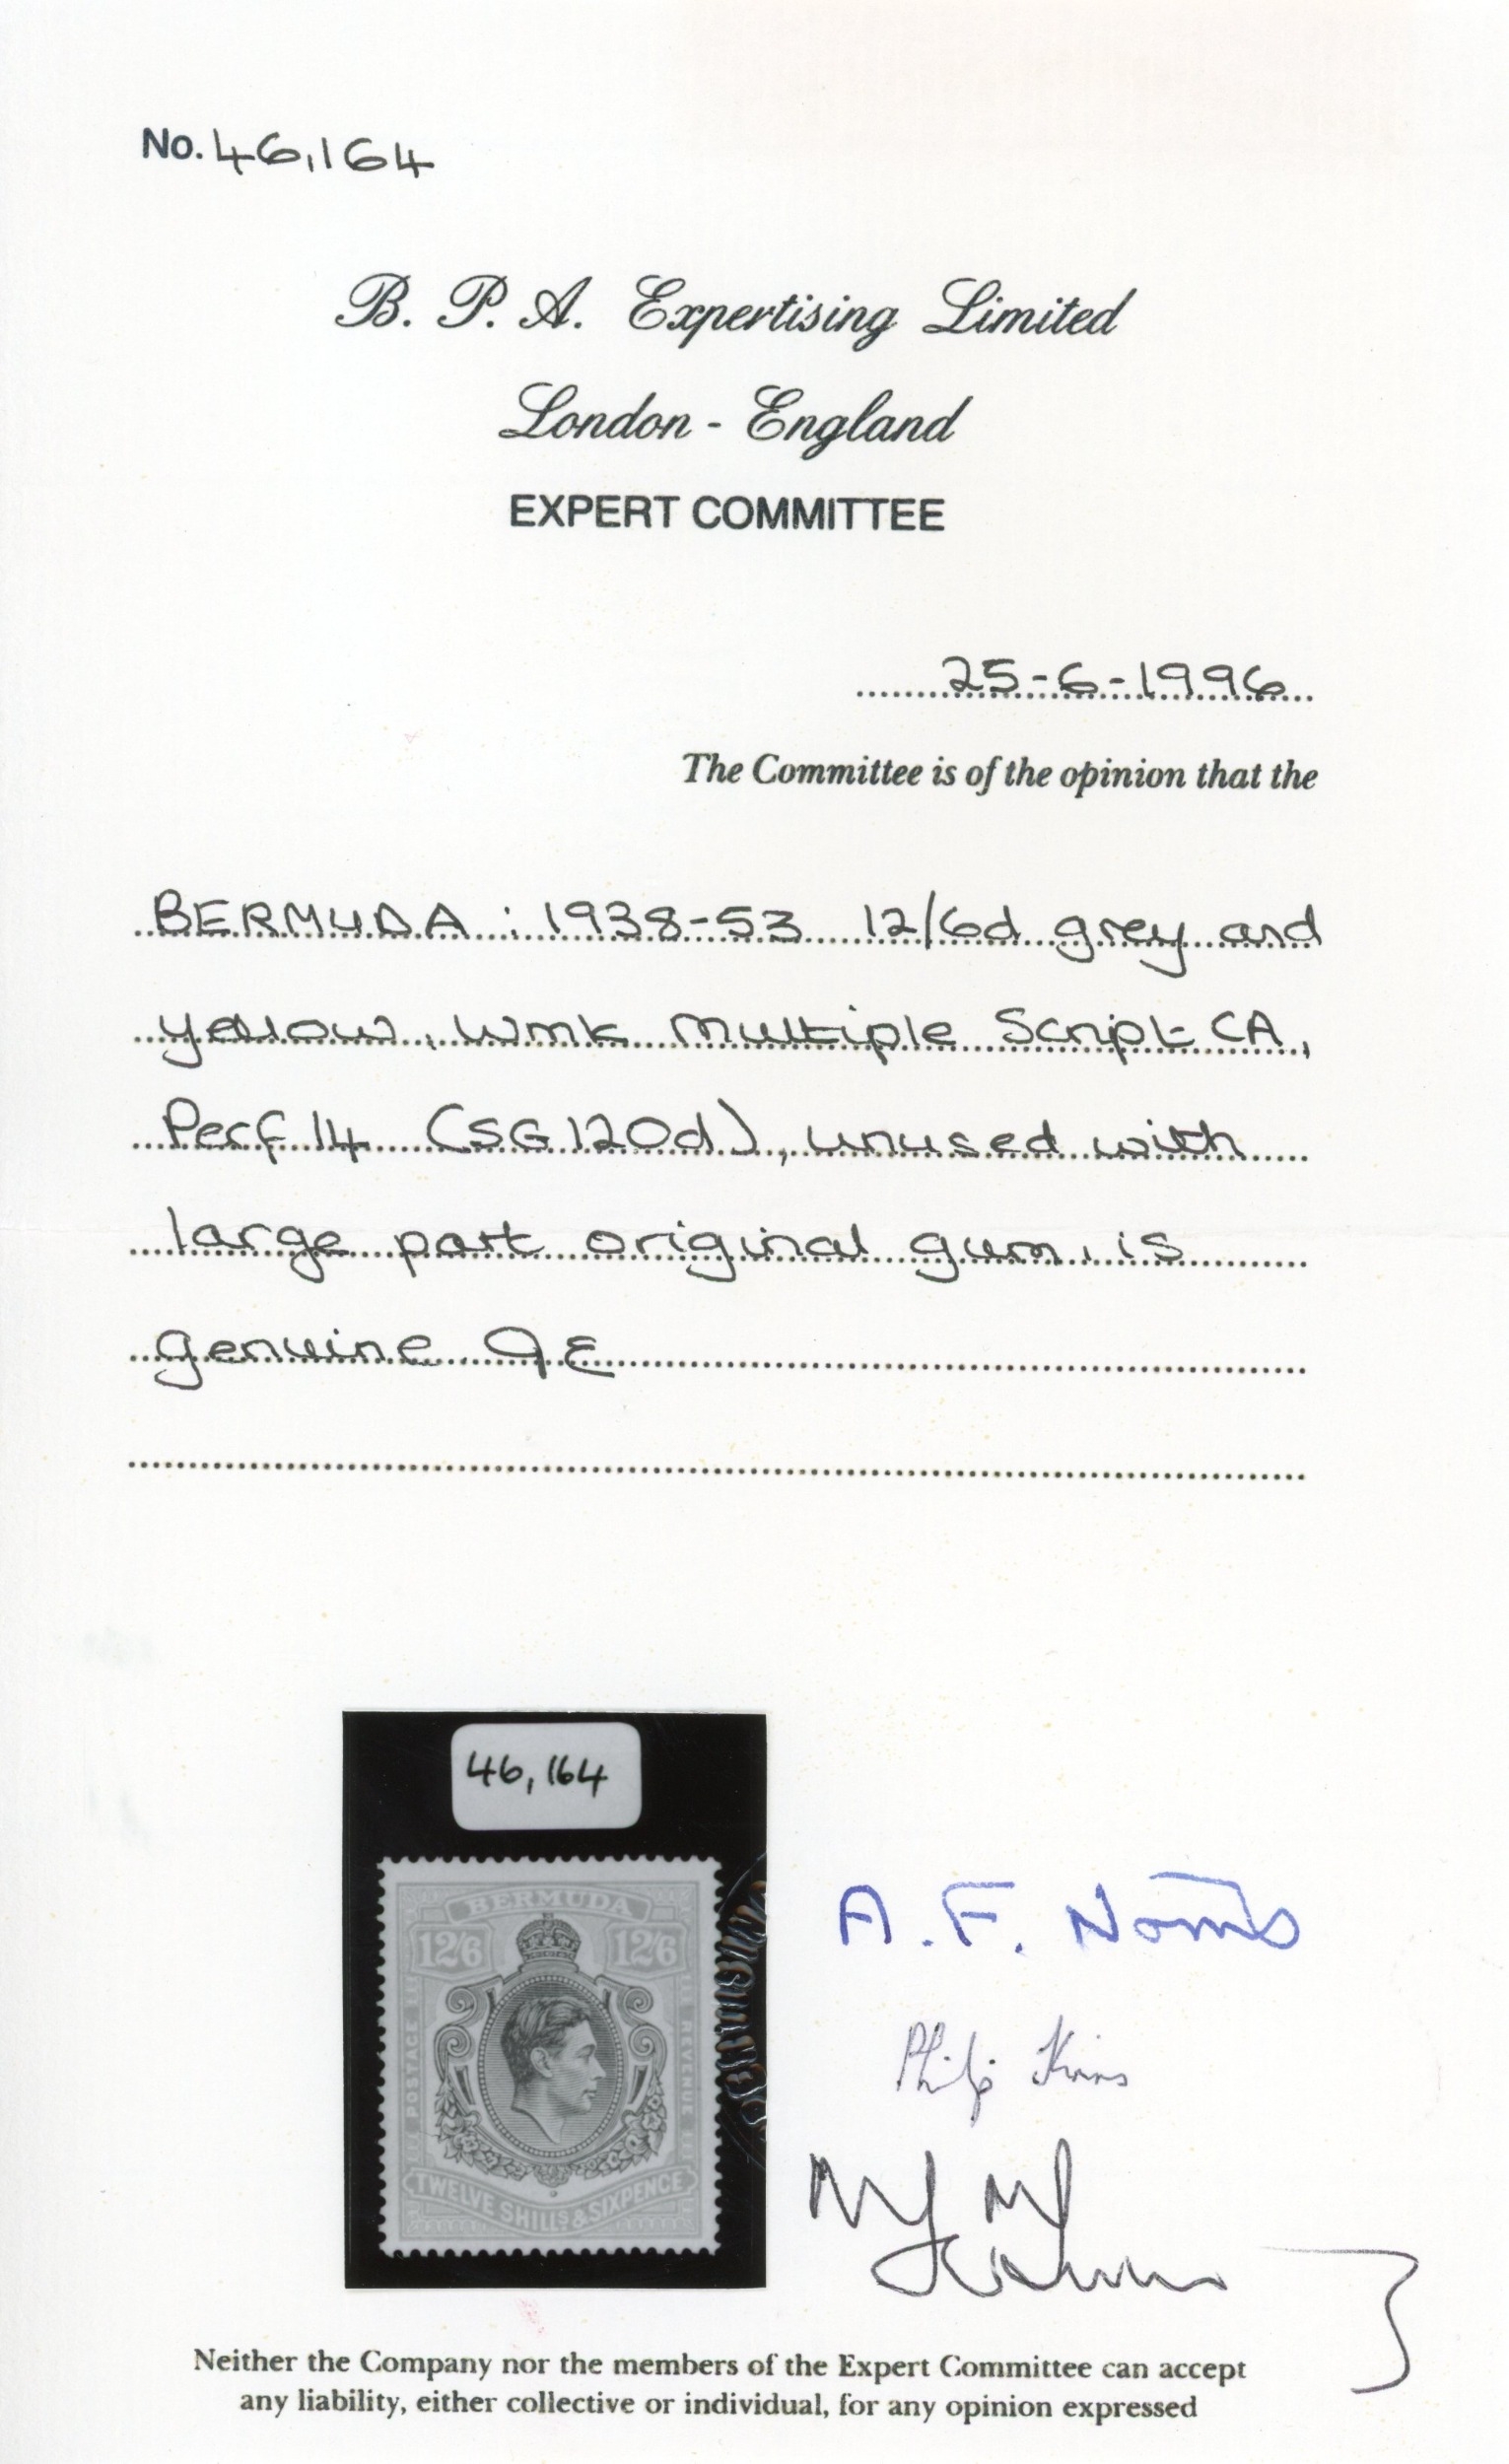 No. 46,164
B. P. A. Expertising Limited
London - England
EXPERT COMMITTEE
25-6-1996
The Committee is of the opinion that the
BERMUDA : 1938-53 12/6d grey and
yellow, Wmk Multiple Script CA,
Perf 14 (SG 120d), unused with
large part original gum, is
genuine
46,164
BERMUDA
12/6 12/6
POSTAGE REVENUE
TWELVE SHILLS & SIXPENCE
A. F. Norris
Philip
Neither the Company nor the members of the Expert Committee can accept
any liability, either collective or individual, for any opinion expressed